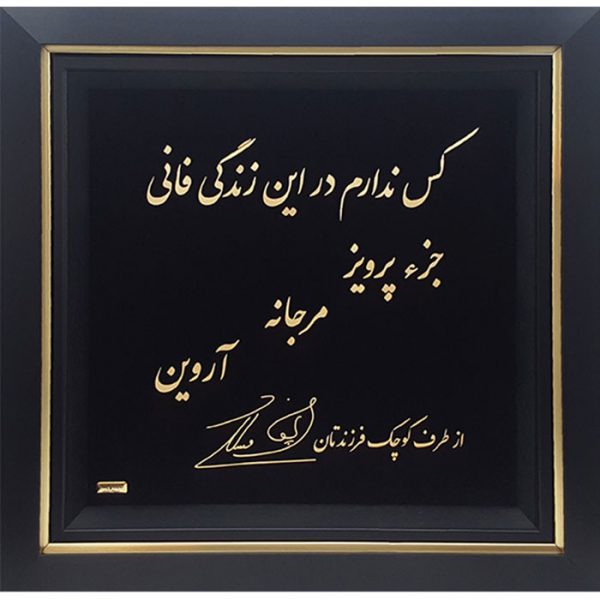 کس ندارم در این زندگی فانی
جزء پرویز
مرجانه
آروین
از طرف کوچک فرزندتان